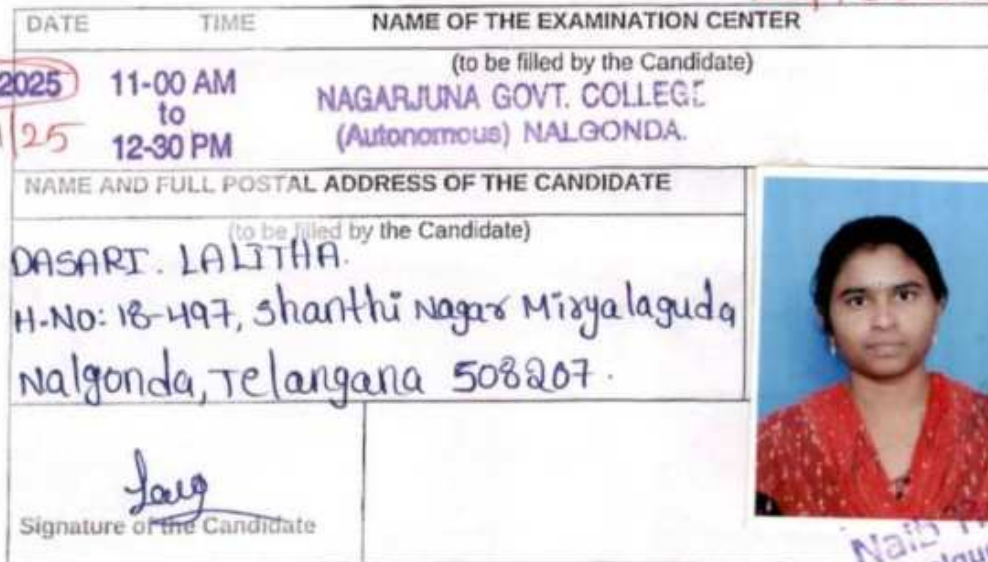 DATE TIME NAME OF THE EXAMINATION CENTER
(to be filled by the Candidate)
2025 11-00 AM to 12-30 PM
NAGARJUNA GOVT. COLLEGE
(Autonomous) NALGONDA.
25
NAME AND FULL POSTAL ADDRESS OF THE CANDIDATE
(to be filled by the Candidate)
DASARI. LALITHA.
H-NO: 18-497, Shanthi Nagar Miryalaguda
Nalgonda, Telangana 508207.
Signature of the Candidate
Naib